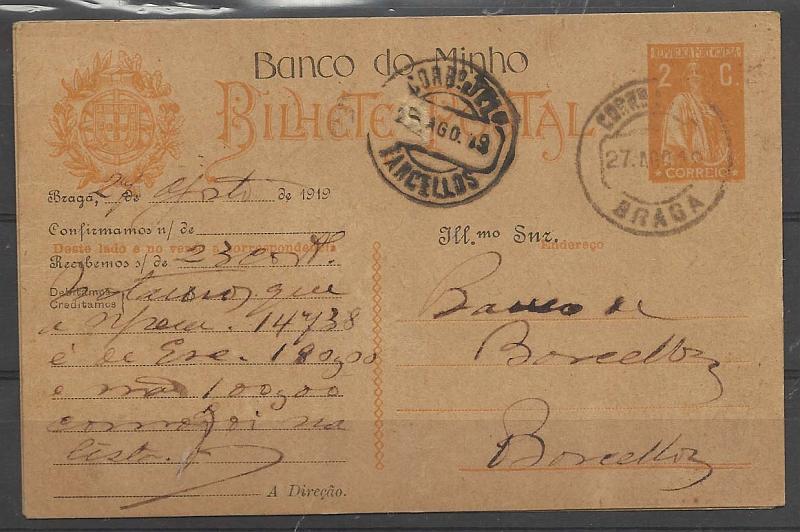 Banco do Minho
BILHETE POSTAL
REPUBLICA PORTUGUESA
2 C.
CORREIO
CORRO
AGO. 19
BARCELLOS
CORRO
27. AGO 19
BRAGA
Braga, 27 de Agosto de 1919
Confirmamos n/ de
Deste lado e no verso a correspondencia
Recebemos s/ de 23 corr.te
Debitamos
Creditamos
Notamos que
a N/ 14738
é de Esc. 180$00
e não 100$00
como foi na
lista.
A Direção.
Ill.mo Snr.
Endereço
Banco de
Barcellos
Barcellos